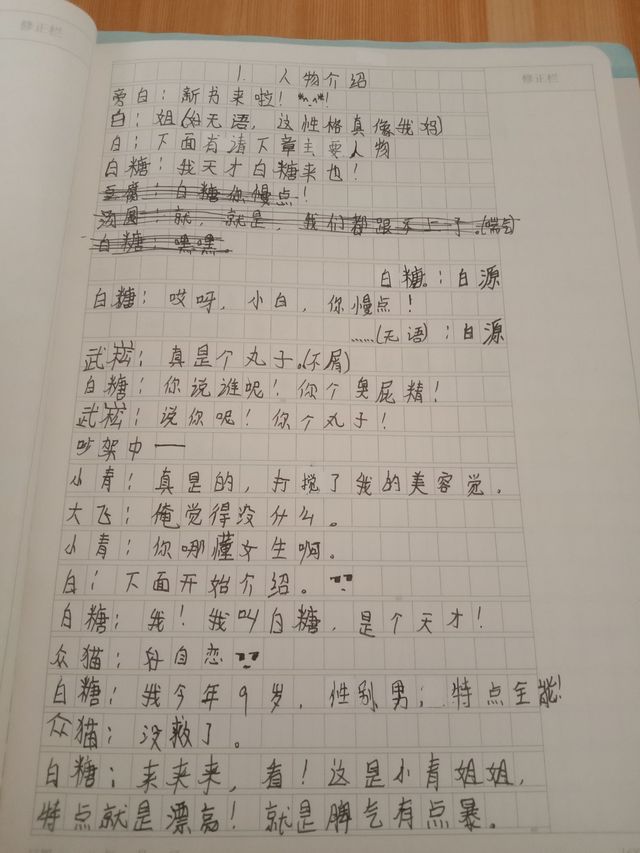 修正栏
修正栏
1. 人物介绍
旁白：新书来啦！*^.^*!
白：姐(好无语，这性格真像我妈)
白：下面有请下章主要人物
白糖：我天才白糖来也！
豆腐：白糖你慢点！
汤圆：就，就是，我们都跟不上了。(喘气)
白糖：嘿嘿。
白糖。：白源
白糖：哎呀，小白，你慢点！
……(无语)：白源
武崧：真是个丸子。(不屑)
白糖：你说谁呢！你个臭屁精！
武崧：说你呢！你个丸子！
吵架中——
小青：真是的，打搅了我的美容觉。
大飞：俺觉得没什么。
小青：你哪懂女生啊。
白：下面开始介绍。
白糖：我！我叫白糖，是个天才！
众猫：好自恋
白糖：我今年9岁，性别男；特点全能！
众猫：没救了。
白糖：来来来，看！这是小青姐姐，
特点就是漂亮！就是脾气有点暴。